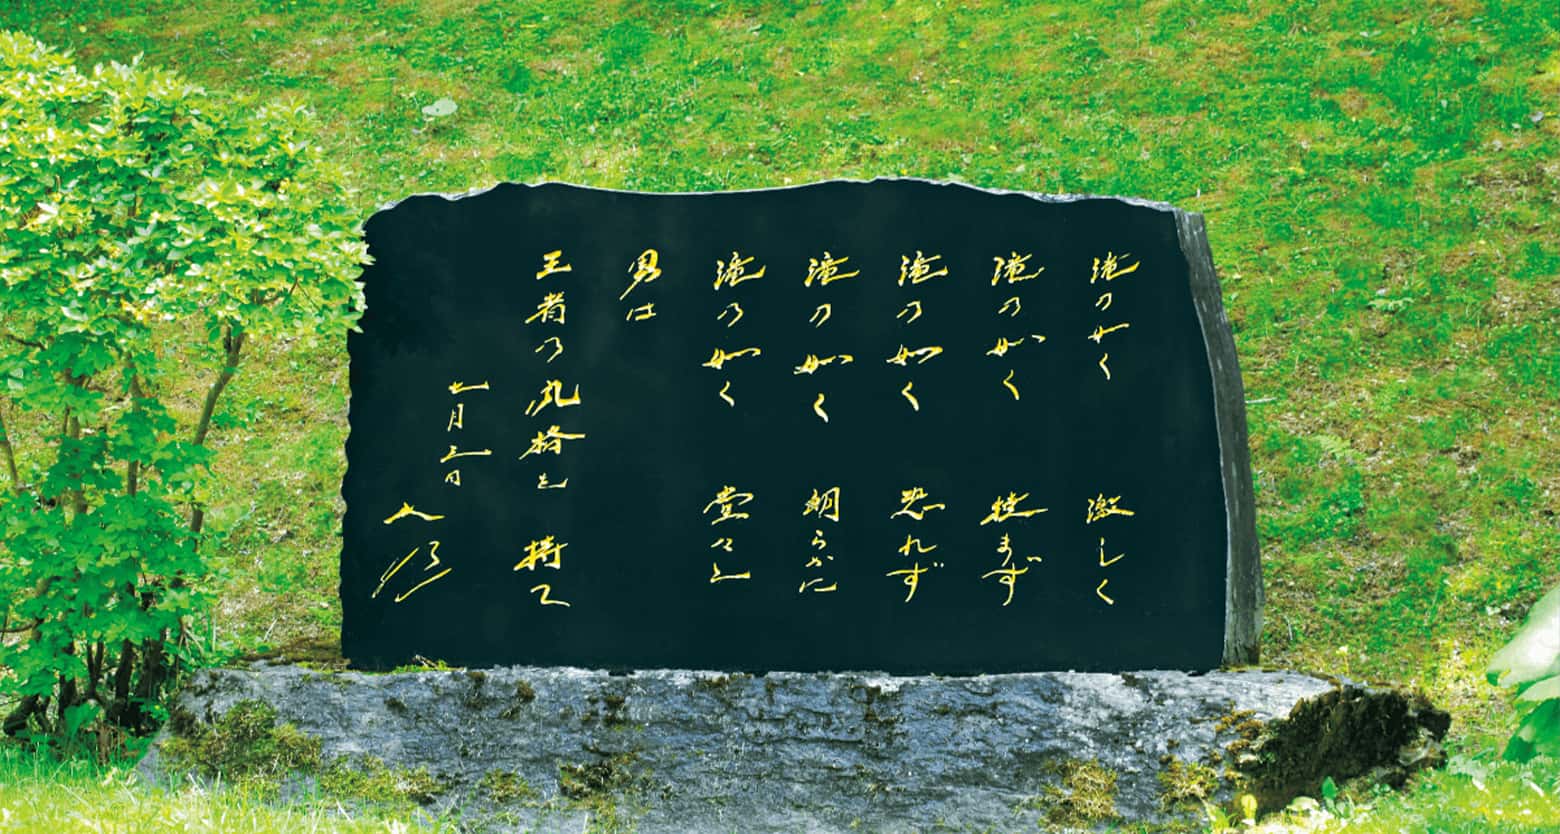 滝の如く 激しく
滝の如く 撓まず
滝の如く 恐れず
滝の如く 朗らかに
滝の如く 堂々と
男は
王者の風格を 持て
七月三日
大作